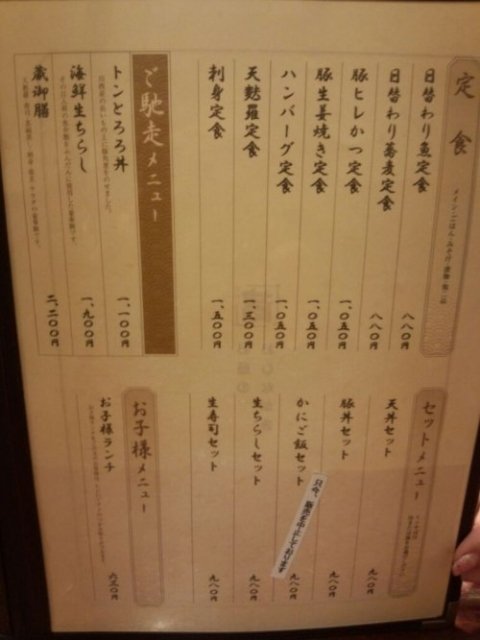 定食
メイン・ごはん・みそ汁・漬物・無二品
日替わり魚定食
八八〇円
日替わり蕎麦定食
八八〇円
豚ヒレかつ定食
一、〇五〇円
豚生姜焼き定食
一、〇五〇円
ハンバーグ定食
一、〇五〇円
天麩羅定食
一、三〇〇円
刺身定食
一、五〇〇円
ご馳走メニュー
トンとろろ丼
一、一〇〇円
海鮮生ちらし
一、九〇〇円
蔵御膳
二、二〇〇円
セットメニュー
天丼セット
九八〇円
豚丼セット
九八〇円
かにご飯セット
九八〇円
只今、販売を中止しております
生ちらしセット
九八〇円
生寿司セット
九八〇円
お子様メニュー
お子様ランチ
六三〇円